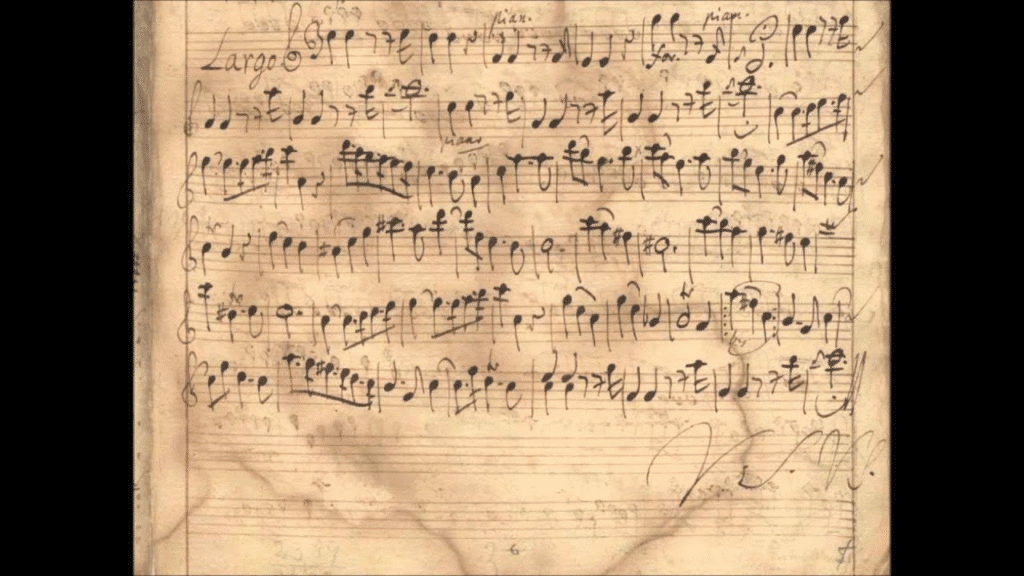 pian. pian.
Largo for.
pian
6